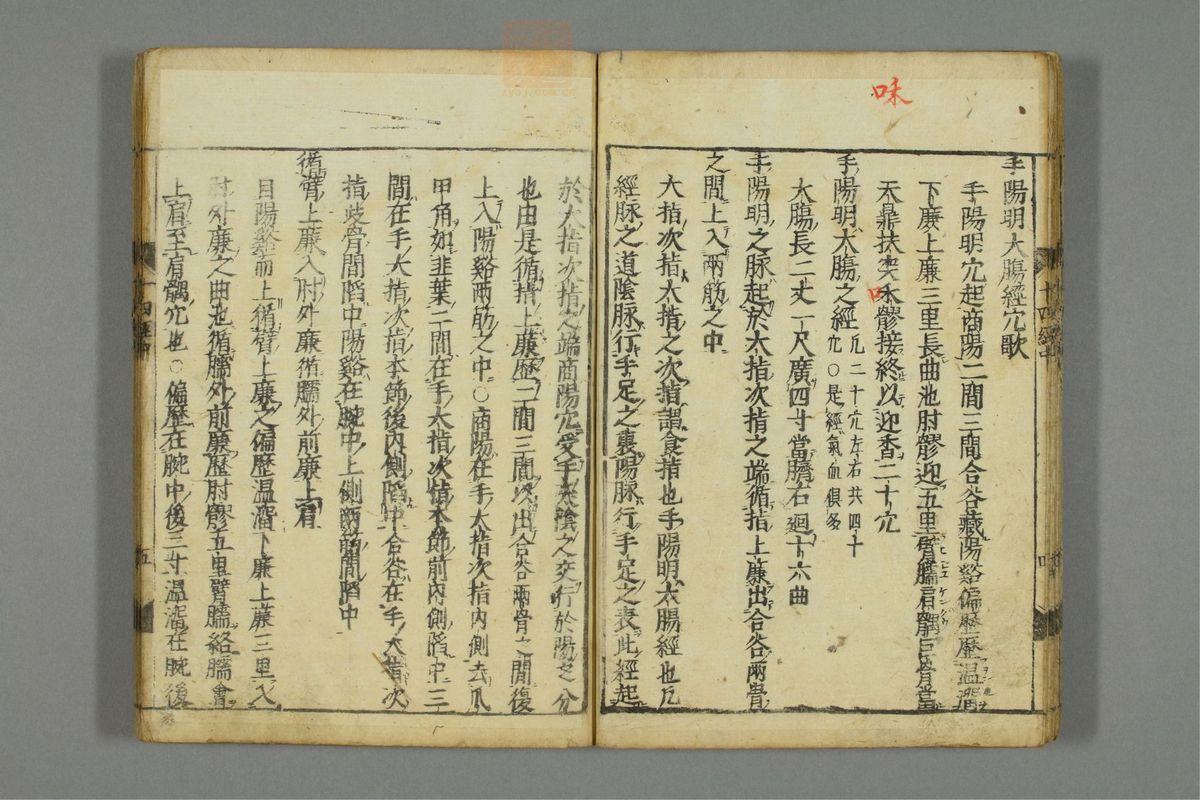 味
手陽明大腸經穴歌
手陽明穴起商陽二間三間合谷藏陽谿偏歷歷溫溜
下廉上廉三里長曲池肘髎迎五里臂臑肩髃巨骨當
天鼎扶突禾髎接終以迎香二十穴
味
手陽明大腸之經
凡二十穴左右共四十
穴〇是經氣血俱多
大腸長二丈一尺廣四寸當臍右迴十六曲
手陽明之脉起於大指次指之端循指上廉出合谷兩骨
之間上入兩筋之中
大指次指大指之次指謂食指也手陽明大腸經也凡
經脉之道陰脉行手足之裏陽脉行手足之表此經起
十四經中
四
於大指次指之端商陽穴受手太陰之交行於陽之分
也由是循指上廉歷二間三間以出合谷兩骨之間復
上入陽谿兩筋之中〇商陽在手大指次指内側去爪
甲角如韭葉二間在手大指次指本節前内側陷中三
間在手大指次指本節後内側陷中合谷在手大指次
指歧骨間陷中陽谿在腕中上側兩筋間陷中
循臂上廉入肘外廉循臑外前廉上肩
自陽谿而上循臂上廉之偏歷溫溜下廉上廉三里入
肘外廉之曲池循臑外前廉歷肘髎五里臂臑絡臑會
上肩至肩髃穴也〇偏歷在腕中後三寸溫溜在腕後
五